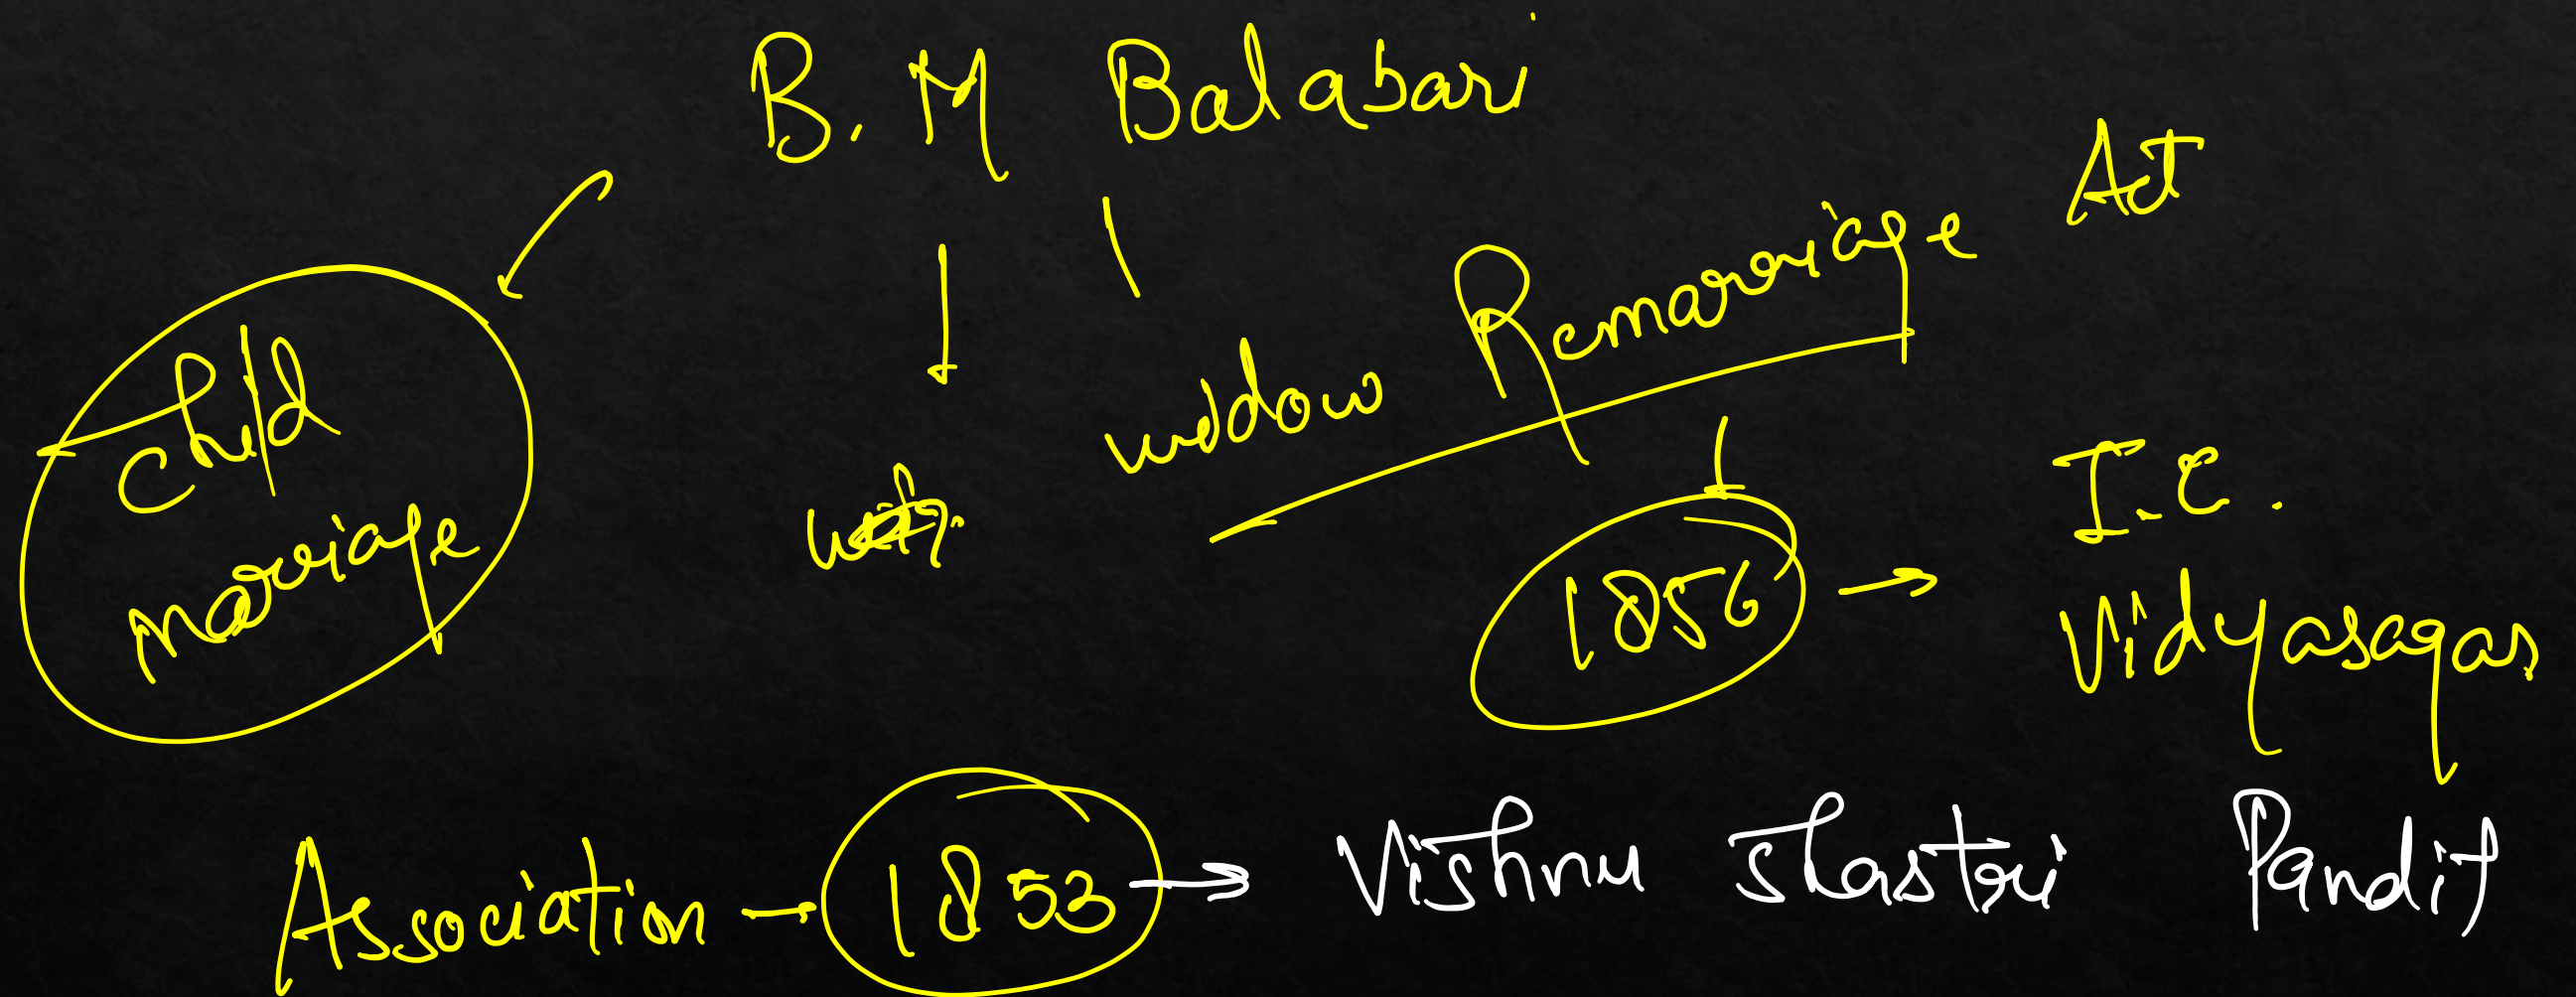 B. M Balabari
Child
marriage
widow Remarriage Act
1856 → I.C.
Vidyasagar
Association → 1853 → Vishnu Shastri Pandit